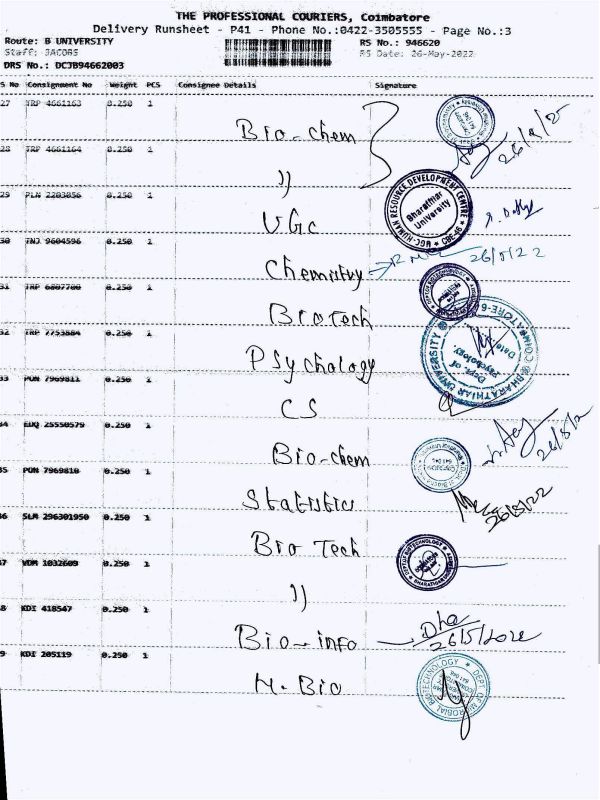 THE PROFESSIONAL COURIERS, Coimbatore
Delivery Runsheet - P41 - Phone No.:0422-3505555 - Page No.:3
Route: B UNIVERSITY RS No.: 946620
Staff: JACOBS RS Date: 26-May-2022
DRS No.: DCJB94662003
S No Consignment No Weight PCS Consignee Details Signature
27 TRP 4661163 0.250 1 Bio-chem
28 TRP 4661164 0.250 1 〃
29 PLN 2203056 0.250 1 UGC
30 TNJ 9604596 0.250 1 Chemistry 26/5/22
31 TRP 6807700 0.250 1 BioTech
32 TRP 7753884 0.250 1 Psychology
33 PON 7969811 0.250 1 CS
34 EDQ 25550579 0.250 1 Bio-chem
35 PON 7969810 0.250 1 Statistics 26/5/22
36 SLM 296301950 0.250 1 Bio Tech
37 VDM 1032609 0.250 1 〃
38 KDI 418547 0.250 1 Bio-info 26/5/2022
39 KDI 205119 0.250 1 M.Bio
UGC-HUMAN RESOURCE DEVELOPMENT CENTRE
Bharathiar
University
CBE-46
BHARATHIAR UNIVERSITY
Dept. of
Psychology
Date
DEPT OF MICROBIAL BIOTECHNOLOGY